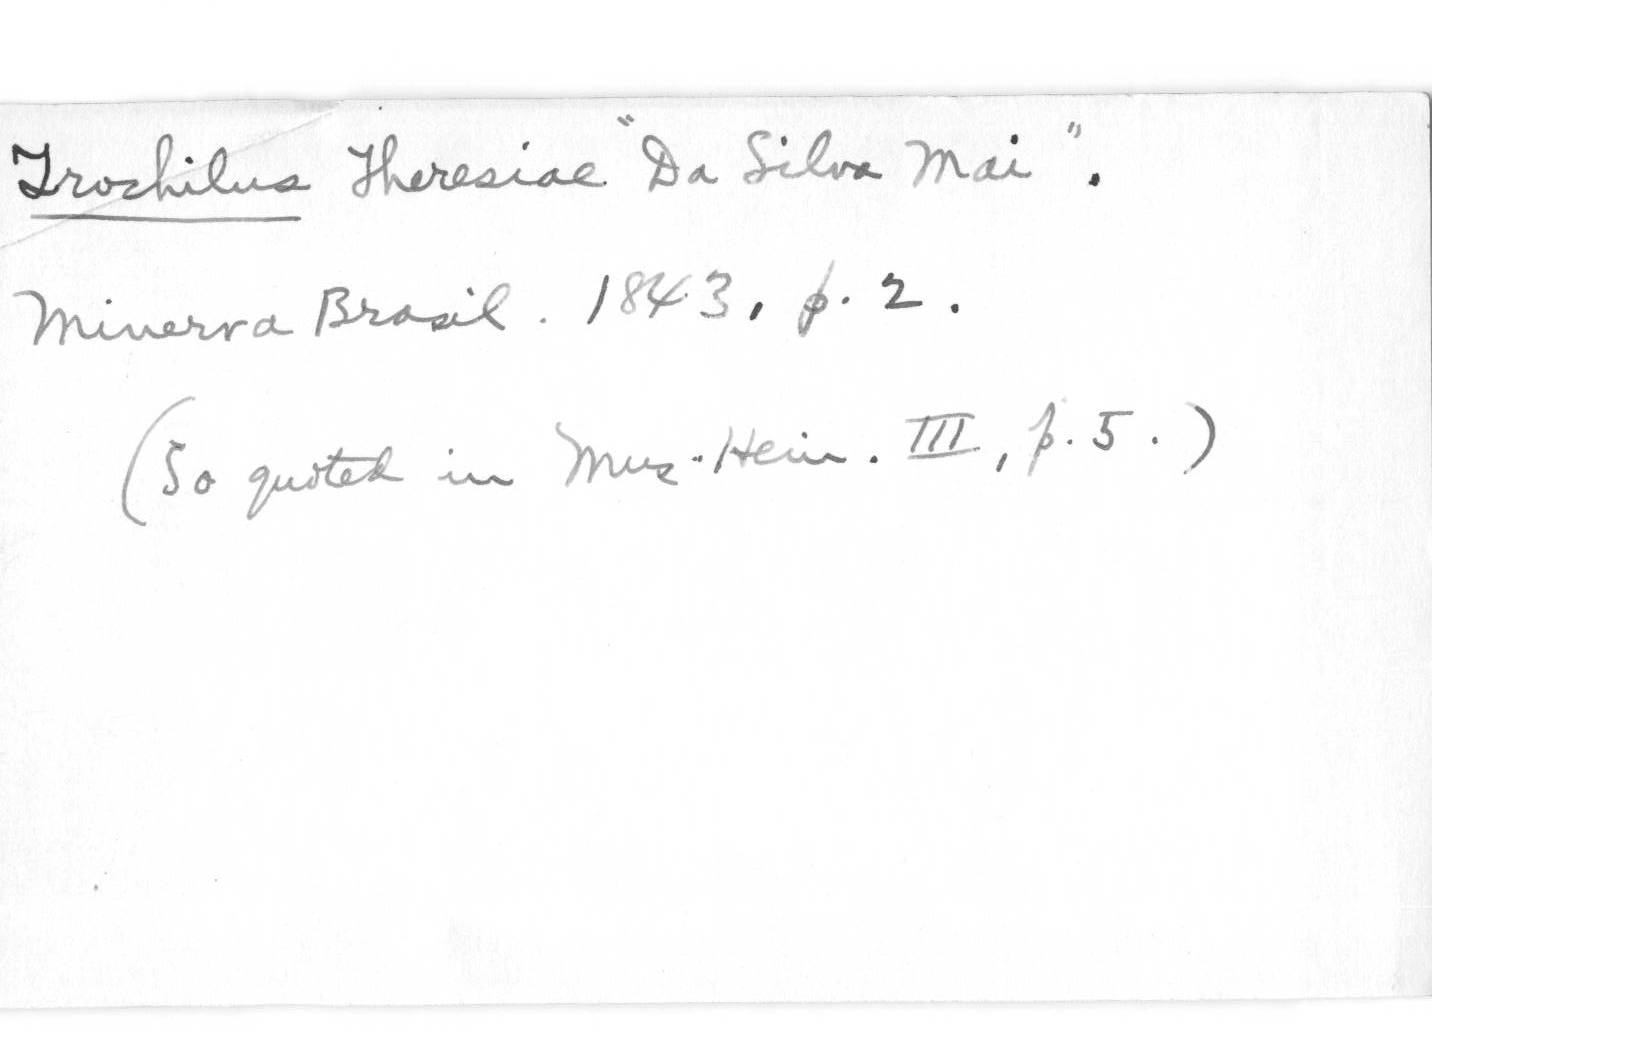 Trochilus Theresiae "Da Silva Mai".
Minerva Brasil. 1843, p. 2.
(So quoted in Mus. Hein. III, p. 5.)